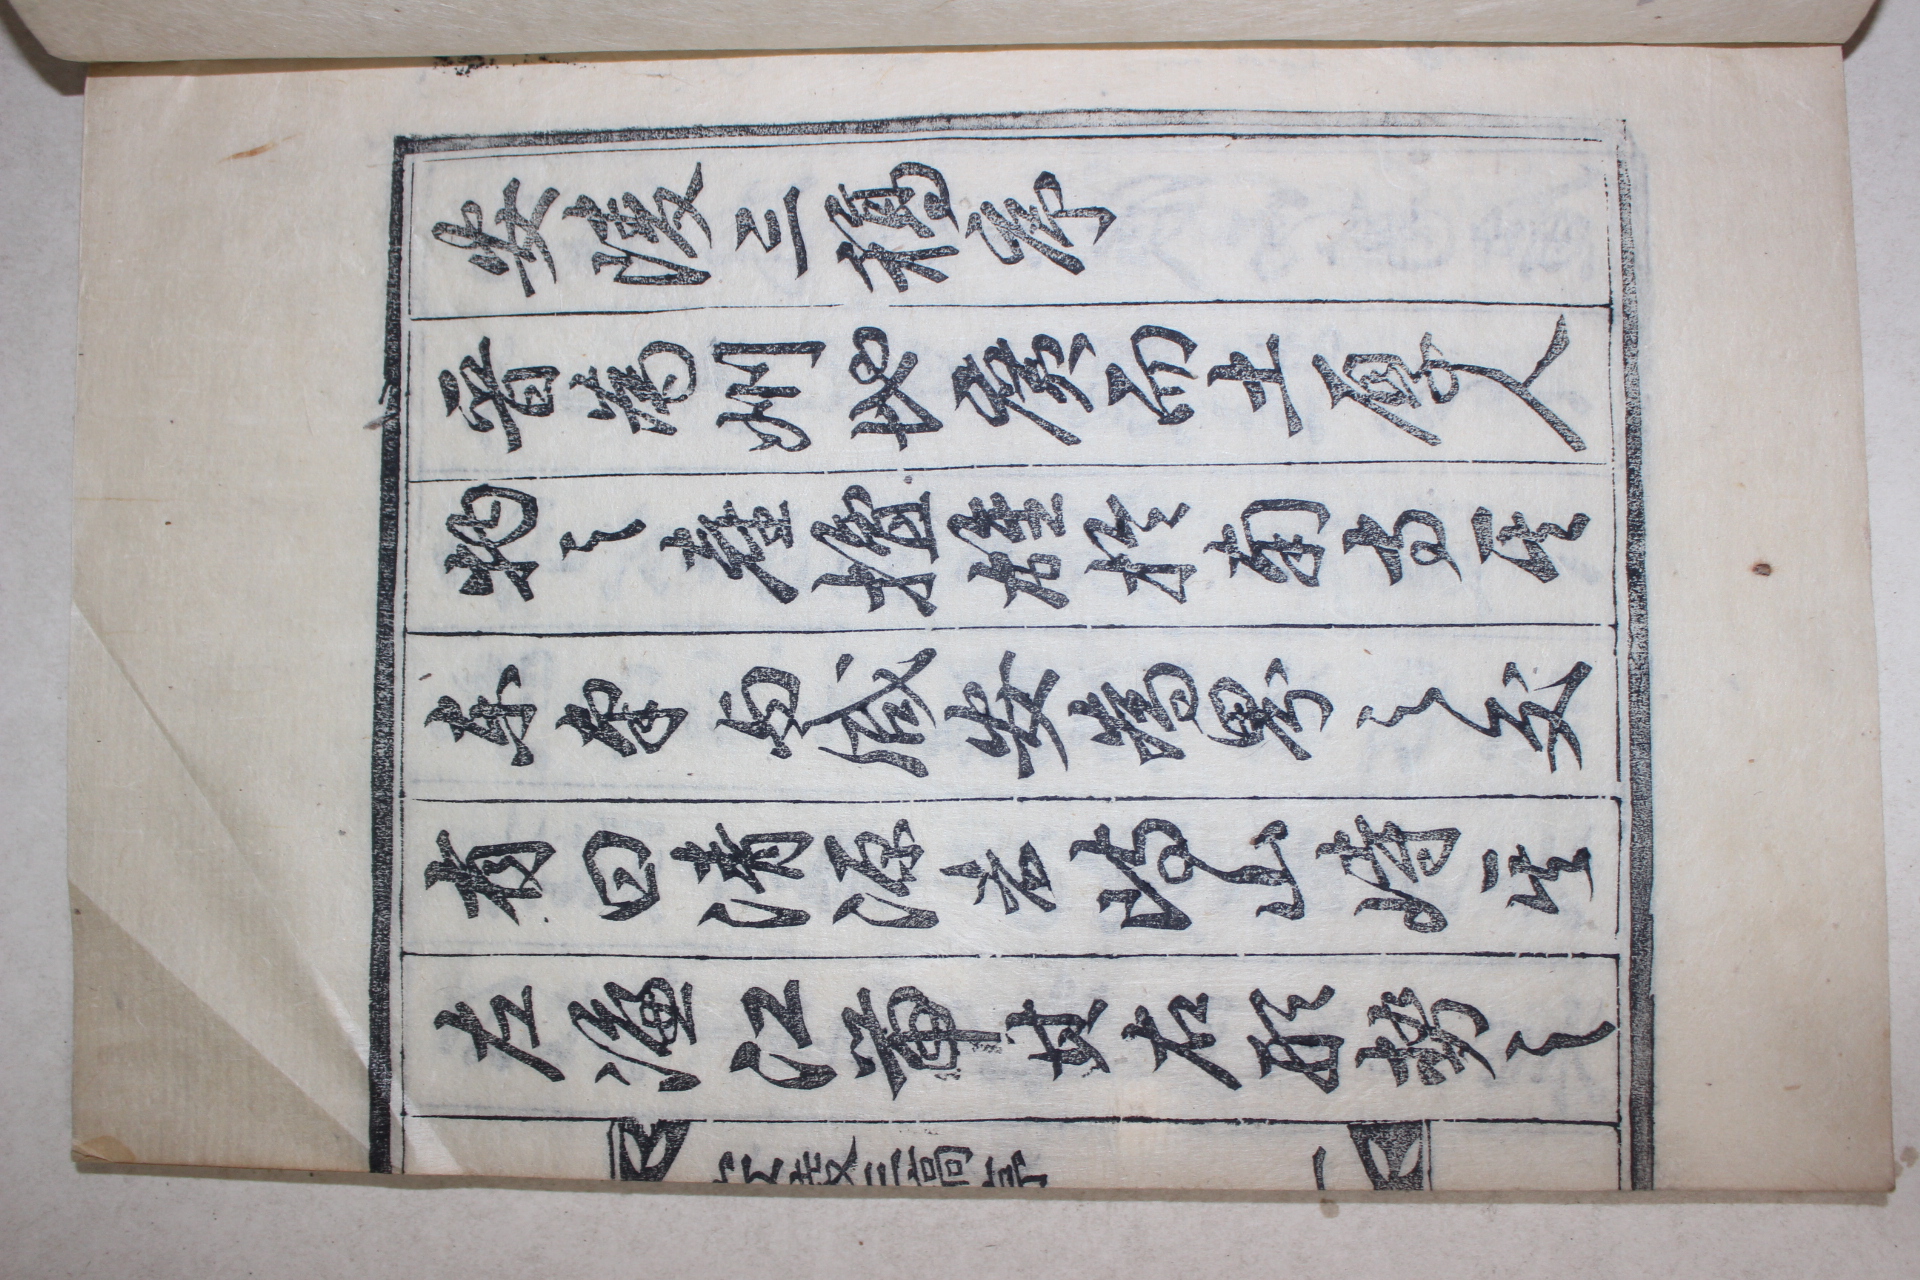 安陵三稿序
晉為州地廣而土厚人
物之產擅雄於南方其
東与咸安為界之交
有曰清源者防山峙其
左濂江帶其右形勢之
安陵三稿序
一